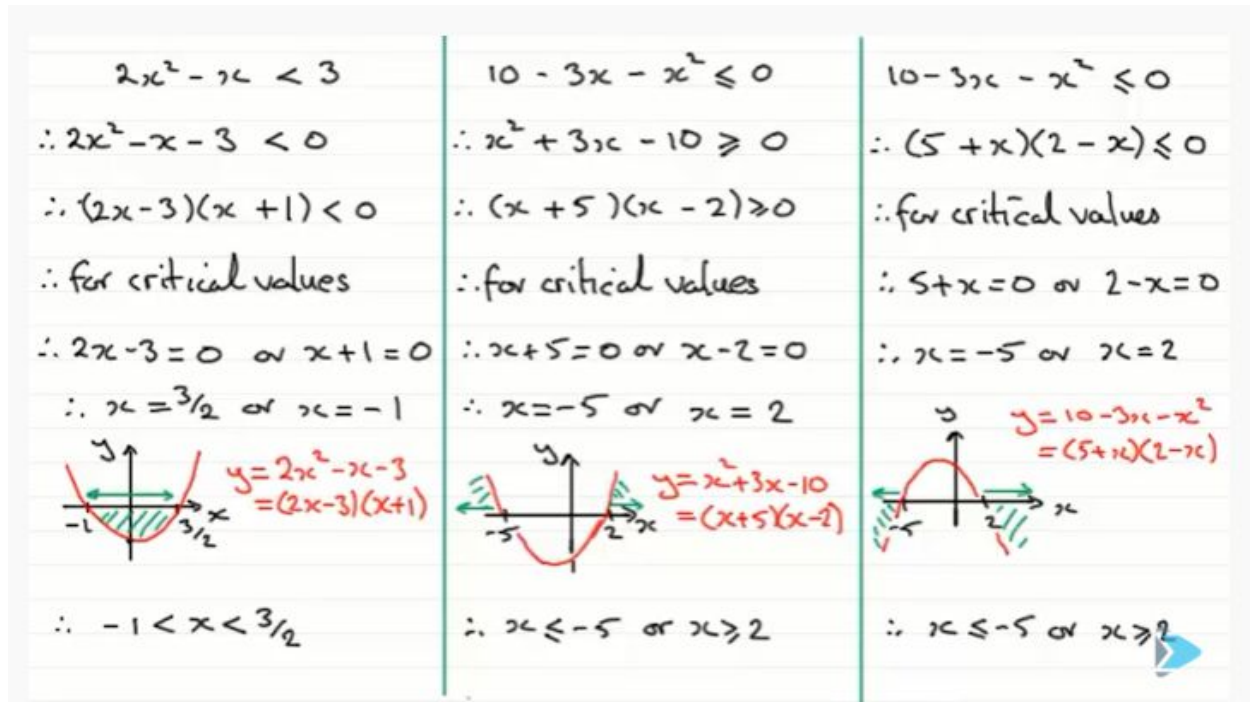 2x² - x < 3
∴ 2x² - x - 3 < 0
∴ (2x-3)(x + 1) < 0
∴ for critical values
∴ 2x-3 = 0 or x+1 = 0
∴ x = 3/2 or x = -1
y
y = 2x² - x - 3
= (2x-3)(x+1)
-1
3/2
x
∴ -1 < x < 3/2
10 - 3x - x² ≤ 0
∴ x² + 3x - 10 ≥ 0
∴ (x + 5)(x - 2) ≥ 0
∴ for critical values
∴ x+5 = 0 or x-2 = 0
∴ x = -5 or x = 2
y
y = x² + 3x - 10
= (x+5)(x-2)
-5
2
x
∴ x ≤ -5 or x ≥ 2
10 - 3x - x² ≤ 0
∴ (5 + x)(2 - x) ≤ 0
∴ for critical values
∴ 5+x = 0 or 2-x = 0
∴ x = -5 or x = 2
y
y = 10 - 3x - x²
= (5+x)(2-x)
-5
2
x
∴ x ≤ -5 or x ≥ 2